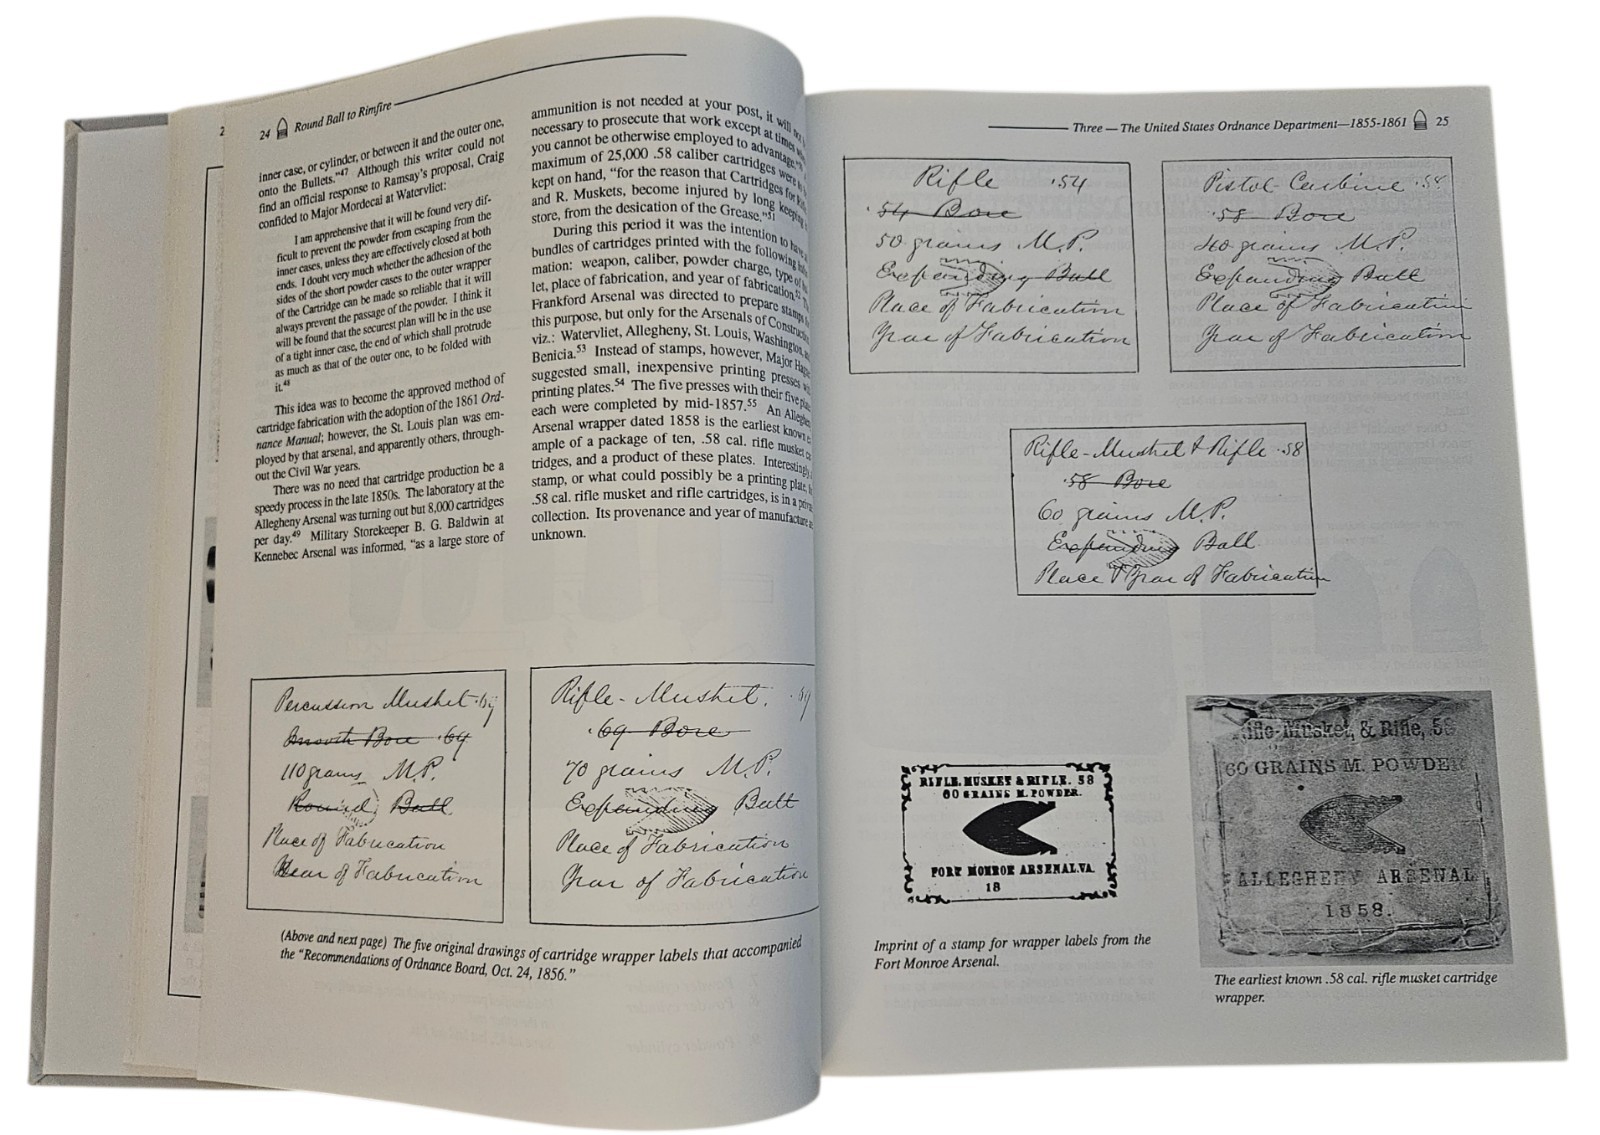 24 Round Ball to Rimfire
inner case, or cylinder, or between it and the outer one,
onto the Bullets."47 Although this writer could not
find an official response to Ramsay's proposal, Craig
confided to Major Mordecai at Watervliet:
I am apprehensive that it will be found very dif-
ficult to prevent the powder from escaping from the
inner cases, unless they are effectively closed at both
ends. I doubt very much whether the adhesion of the
sides of the short powder cases to the outer wrapper
of the Cartridge can be made so reliable that it will
always prevent the passage of the powder. I think it
will be found that the securest plan will be in the use
of a tight inner case, the end of which shall protrude
as much as that of the outer one, to be folded with
it.48
This idea was to become the approved method of
cartridge fabrication with the adoption of the 1861 Ord-
nance Manual; however, the St. Louis plan was em-
ployed by that arsenal, and apparently others, through-
out the Civil War years.
There was no need that cartridge production be a
speedy process in the late 1850s. The laboratory at the
Allegheny Arsenal was turning out but 8,000 cartridges
per day.49 Military Storekeeper B. G. Baldwin at
Kennebec Arsenal was informed, "as a large store of
ammunition is not needed at your post, it will
necessary to prosecute that work except at times
you cannot be otherwise employed to advantage."
maximum of 25,000 .58 caliber cartridges were
kept on hand, "for the reason that Cartridges for
and R. Muskets, become injured by long keeping
store, from the desication of the Grease."51
During this period it was the intention to
bundles of cartridges printed with the following
mation: weapon, caliber, powder charge, type of
let, place of fabrication, and year of fabrication.52
Frankford Arsenal was directed to prepare stamps
this purpose, but only for the Arsenals of
viz.: Watervliet, Allegheny, St. Louis, Washington,
Benicia.53 Instead of stamps, however, Major
suggested small, inexpensive printing presses
printing plates.54 The five presses with their five
each were completed by mid-1857.55 An
Arsenal wrapper dated 1858 is the earliest known
ample of a package of ten, .58 cal. rifle musket
tridges, and a product of these plates. Interestingly,
stamp, or what could possibly be a printing plate,
.58 cal. rifle musket and rifle cartridges, is in a
collection. Its provenance and year of manufacture
unknown.
Percussion Musket
Smooth Bore .69
110 grains M.P.
Round Ball
Place of Fabrication
Year of Fabrication
Rifle-Musket. .69
.69 Bore
70 grains M.P.
Expanding Ball
Place of Fabrication
Year of Fabrication
(Above and next page) The five original drawings of cartridge wrapper labels that accompanied
the "Recommendations of Ordnance Board, Oct. 24, 1856."
Three — The United States Ordnance Department—1855-1861 25
Rifle .54
.54 Bore
50 grains M.P.
Expanding Ball
Place of Fabrication
Year of Fabrication
Pistol-Carbine .58
.58 Bore
40 grains M.P.
Expanding Ball
Place of Fabrication
Year of Fabrication
Rifle-Musket & Rifle .58
.58 Bore
60 grains M.P.
Expanding Ball
Place & Year of Fabrication
RIFLE. MUSKET & RIFLE. 58
60 GRAINS M. POWDER.
FORT MONROE ARSENAL. VA.
18
Imprint of a stamp for wrapper labels from the
Fort Monroe Arsenal.
Rifle-Musket, & Rifle, 58
60 GRAINS M. POWDER
ALLEGHENY ARSENAL
1858.
The earliest known .58 cal. rifle musket cartridge
wrapper.